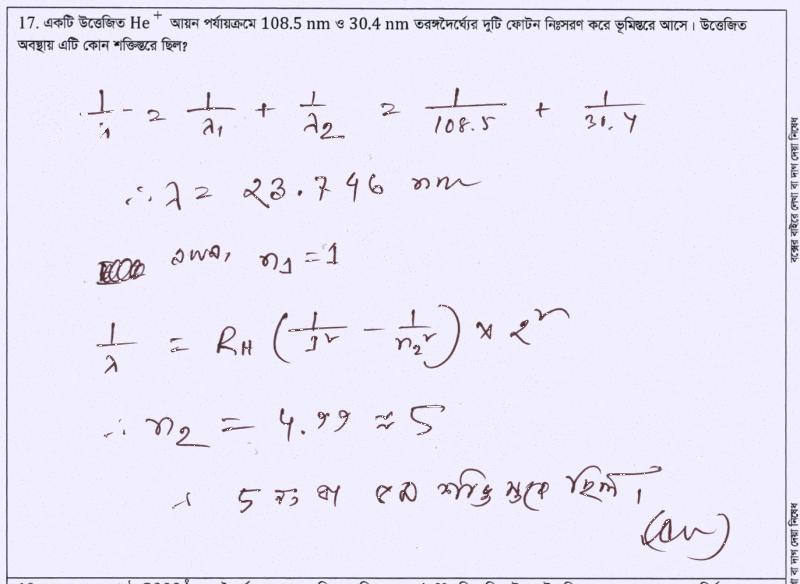 17. একটি উত্তেজিত He⁺ আয়ন পর্যায়ক্রমে 108.5 nm ও 30.4 nm তরঙ্গদৈর্ঘ্যের দুটি ফোটন নিঃসরণ করে ভূমিস্তরে আসে। উত্তেজিত
অবস্থায় এটি কোন শক্তিস্তরে ছিল?
1/λ = 1/λ₁ + 1/λ₂ = 1/108.5 + 1/30.4
∴ λ = 23.746 nm
n₁ = 1
1/λ = R_H (1/1² − 1/n₂²) × 2²
∴ n₂ = 4.99 ≈ 5
∴ 5 নং বা ৫ম শক্তি স্তরে ছিল।
(Ans)
বক্সের বাইরে লেখা বা দাগ দেয়া নিষেধ
বা দাগ দেয়া নিষেধ